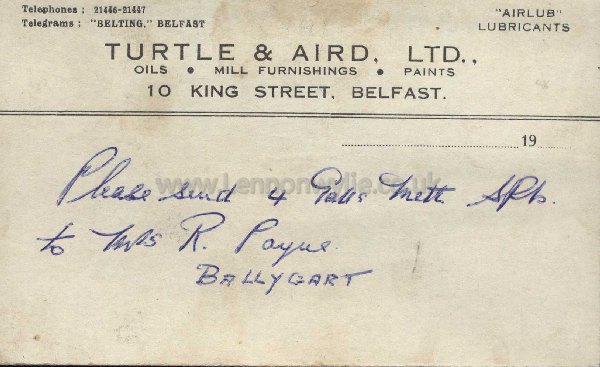 Telephones : 21446-21447
Telegrams : "BELTING," BELFAST
"AIRLUB"
LUBRICANTS
TURTLE & AIRD, LTD.,
OILS • MILL FURNISHINGS • PAINTS
10 KING STREET, BELFAST.
19
Please send 4 Galls Meth. Spts.
to Mrs R. Payne.
BALLYGART
www.Lennonwylie.co.uk